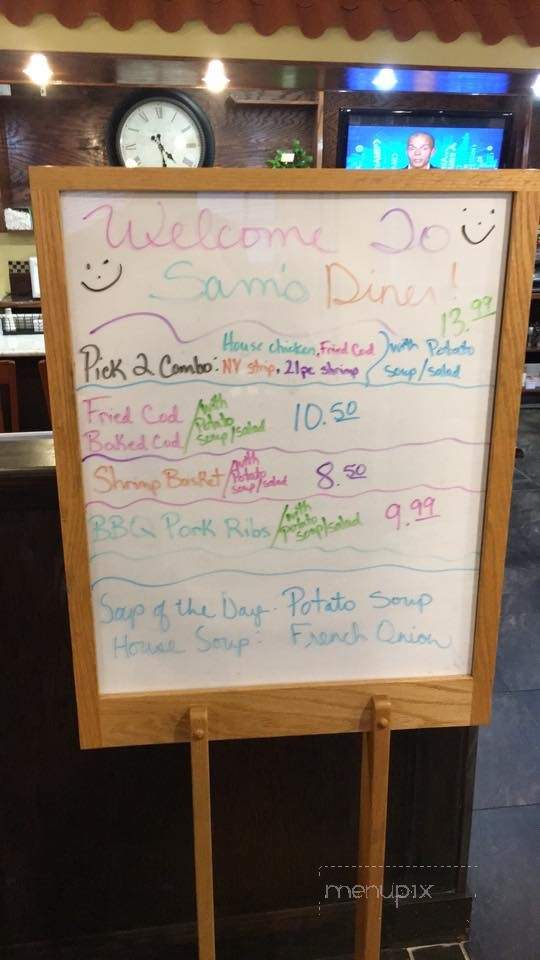 Welcome To
Sam's Diner!
13.99
Pick 2 Combo: House chicken, Fried Cod, NY strip, 21pc shrimp with Potato soup/salad
Fried Cod
Baked Cod / with Potato soup/salad 10.50
Shrimp Basket / with Potato soup/salad 8.50
BBQ Pork Ribs / with potato soup/salad 9.99
Soup of the Day: Potato Soup
House Soup: French Onion
menupix